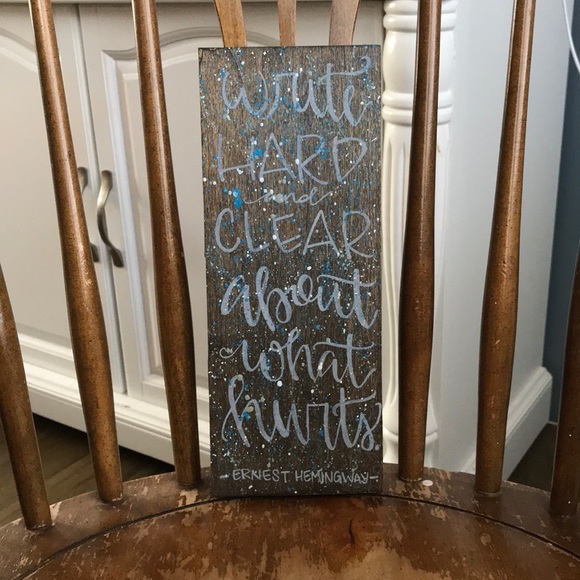 write
HARD
and
CLEAR
about
what
hurts.
-ERNEST HEMINGWAY-